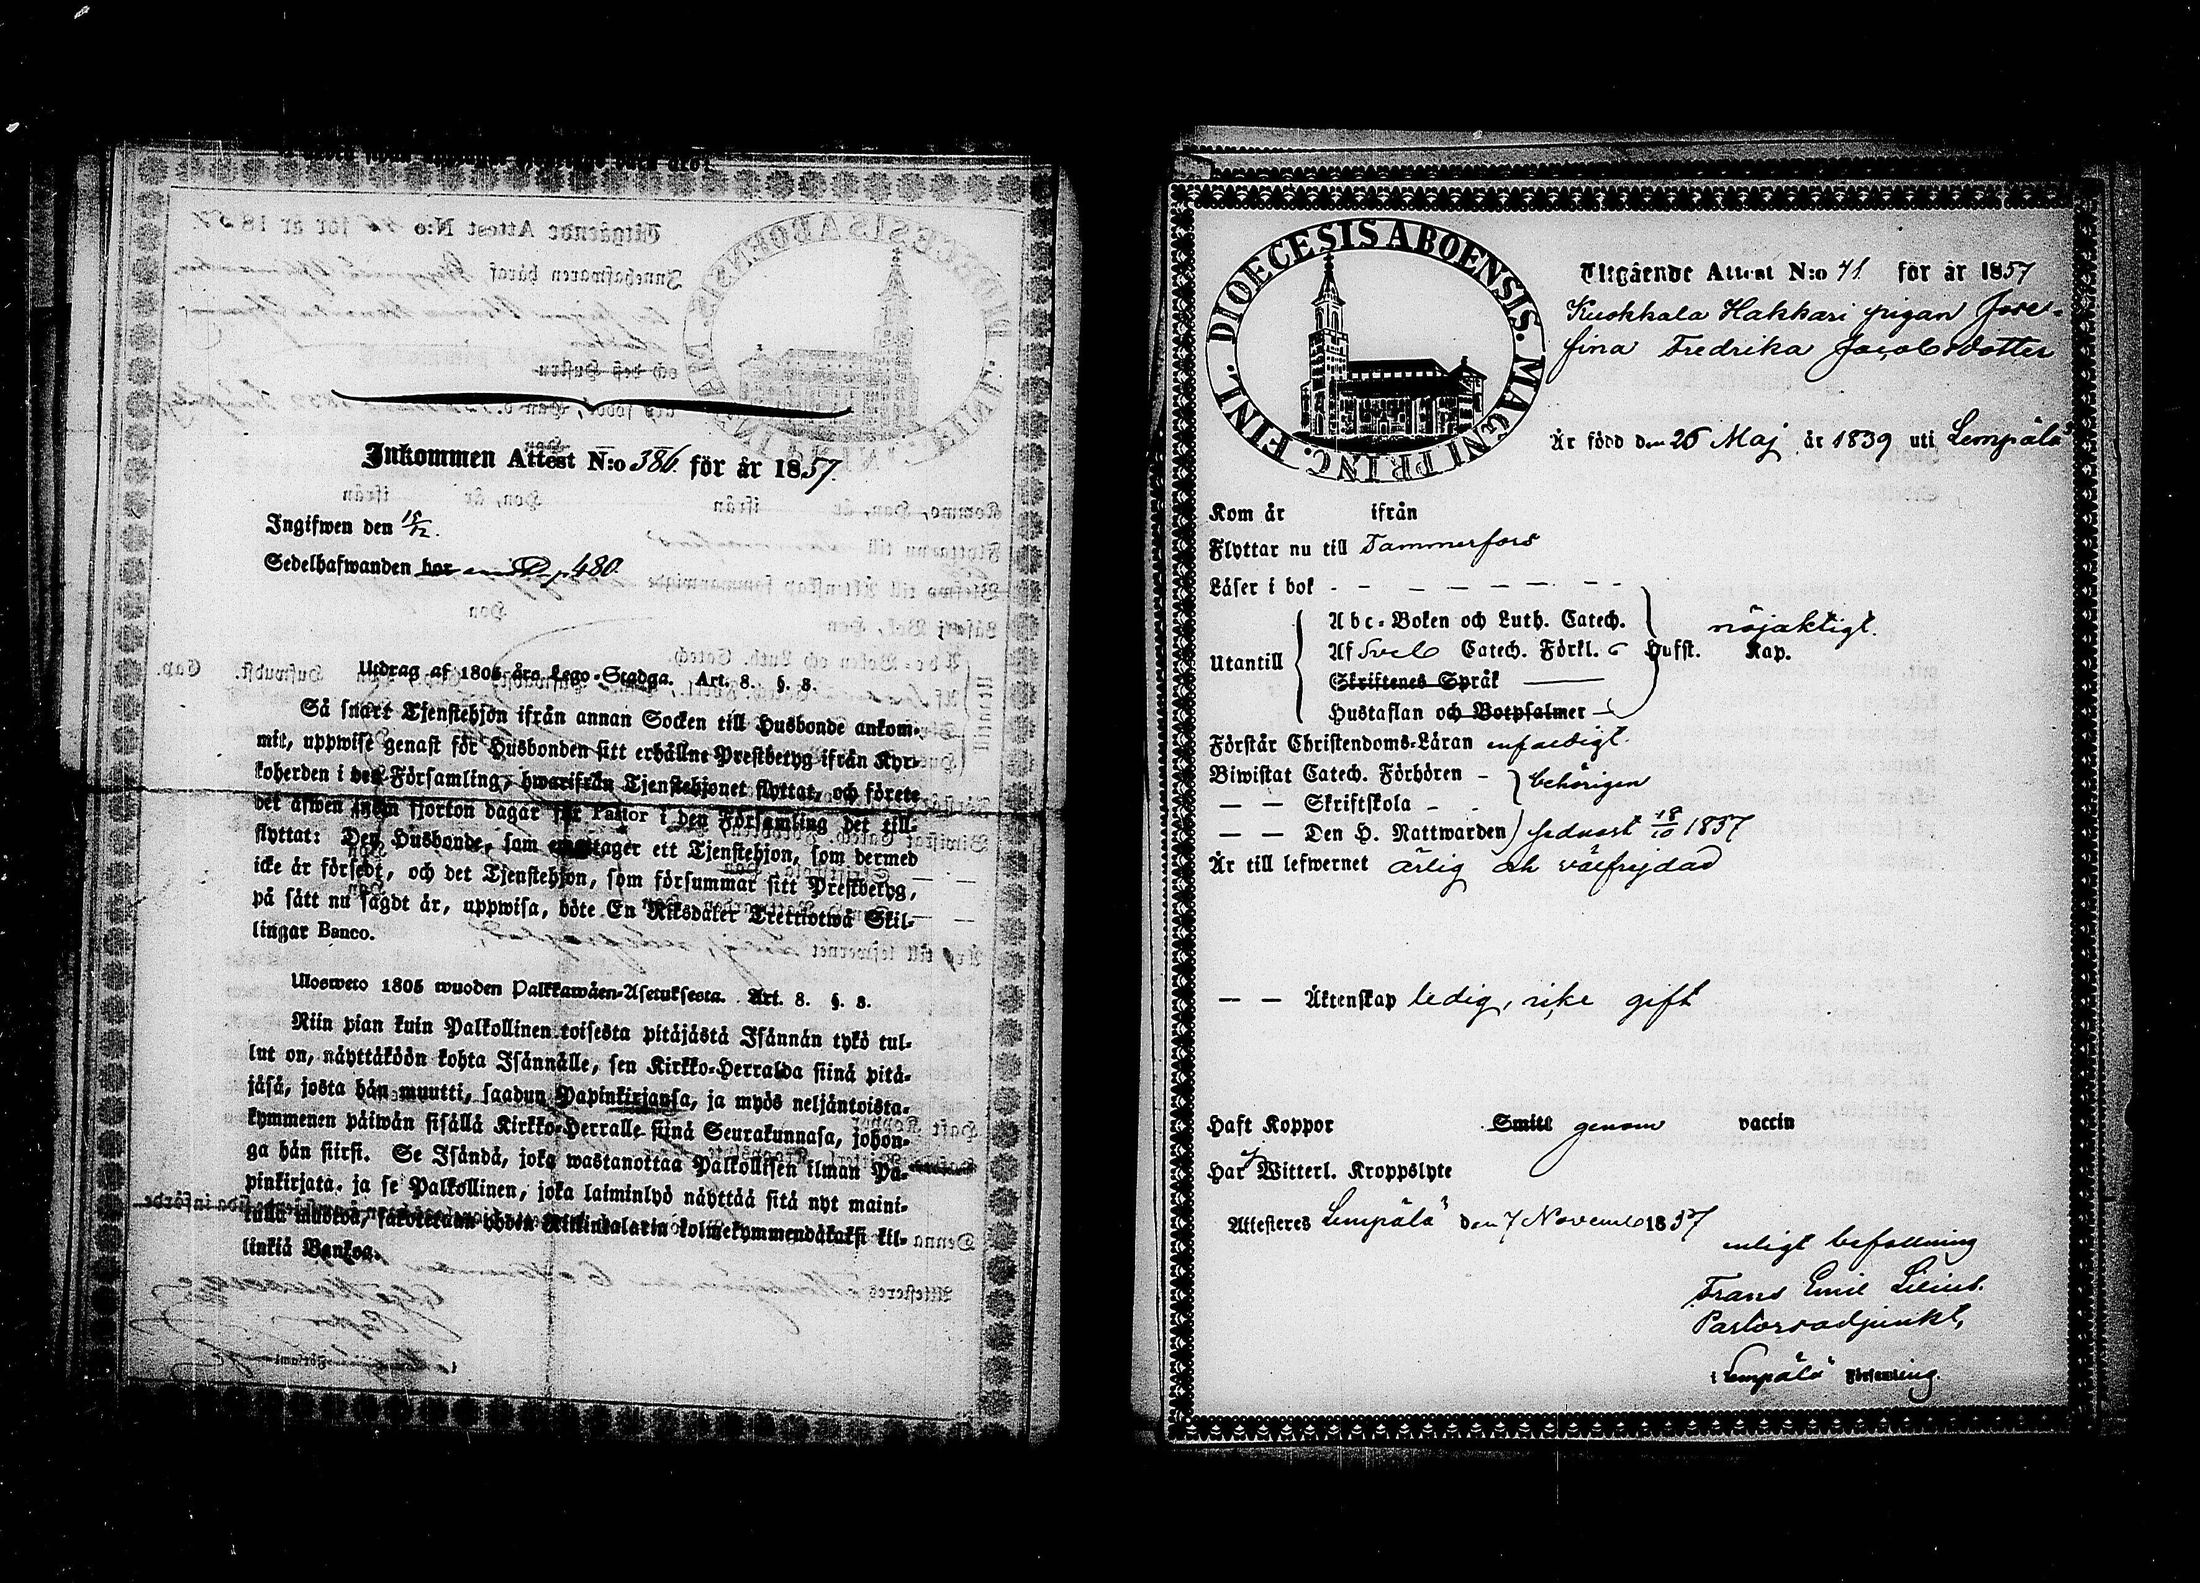 Inkommen Attest N:o 386. för år 1857.
Ingifwen den 15/12.
Sedelhafwanden bor p. 480.
Utdrag af 1805 års Lego-Stadga. Art. 8. §. 8.
Så snart Tjenstehjon ifrån annan Socken till Husbonde ankom-
mit, uppwise genast för Husbonden sitt erhållne Prestbetyg ifrån Kyr-
koherden i den Församling, hwarifrån Tjenstehjonet flyttat, och förete
det äfwen inom fjorton dagar för Pastor i den Församling det till-
flyttat: Den Husbonde, som emottager ett Tjenstehjon, som dermed
icke är försedt, och det Tjenstehjon, som försummar sitt Prestbetyg,
på sätt nu sagdt är, uppwisa, böte En Riksdaler Trettiotwå Skil-
lingar Banco.
Ulosweto 1805 wuoden Palkkawäen-Asetuksesta. Art. 8. §. 8.
Niin pian kuin Palkollinen toisesta pitäjästä Isännän tykö tul-
lut on, näyttäköön kohta Isännälle, sen Kirkko-Herralda siinä pitä-
jäsä, josta hän muutti, saadun Papinkirjansa, ja myös neljäntoista-
kymmenen päiwän sisällä Kirkko-Herralle siinä Seurakunnasa, johon-
ga hän siirsi. Se Isändä, joka wastanottaa Palkollisen ilman Pa-
pinkirjata, ja se Palkollinen, joka laiminlyö näyttää sitä nyt maini-
tulla muodolla, sakoitetaan yhden Riikintalarin kolmekymmendäkaksi kil-
linkiä Bankoa.
DIOECESIS ABOENSIS. MAGNI PRINC. FINL.
Utgående Attest N:o 41. för år 1857
Kuokkala Hakkari pigan Jose-
fina Fredrika Jacobsdotter
Är född den 26 Maj år 1839 uti Lempälä
Kom år ifrån
Flyttar nu till Tammerfors
Läser i bok - - - - - - -
Utantill
Abc-Boken och Luth. Catech. nöjaktigt.
Af Sveb Catech. Förkl. 6 Hufst. Kap.
Skriftenes Språk
Hustaflan och Botpsalmer
Förstår Christendoms-Läran enfaldigt.
Biwistat Catech. Förhören - behörigen
— — Skriftskola - -
— — Den H. Nattwarden sednast 18/10 1857
Är till lefwernet ärlig och välfrejdad
— — Äktenskap ledig, icke gift
Haft Koppor Smitt genom vaccin
Har Witterl. Kroppslyte
Attesteres Lempälä den 7 November 1857
enligt befallning
Frans Emil Lilius.
Pastorsadjunkt,
i Lempälä Församling.